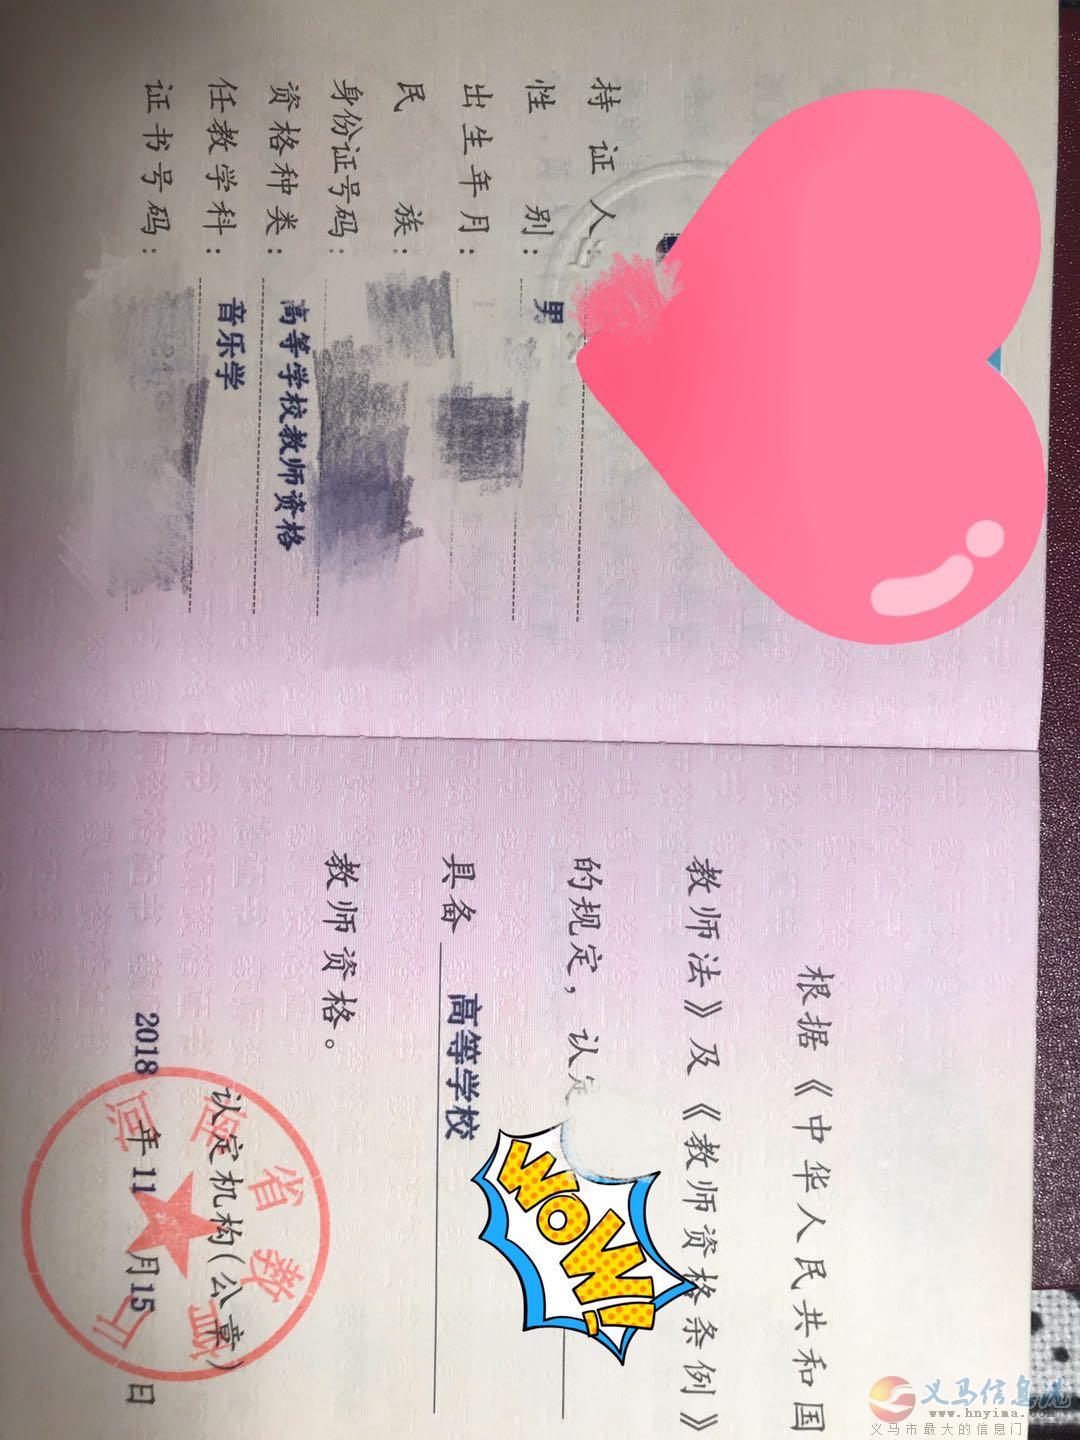 持证人:
性别: 男
出生年月:
民族:
身份证号码:
资格种类: 高等学校教师资格
任教学科: 音乐学
证书号码:
根据《中华人民共和国
教师法》及《教师资格条例》
的规定，认定
WOW!
具备 高等学校
教师资格。
认定机构(公章)
2018年11月15日
河南省教育厅
义马信息港
www.hnyima.com
义马市最大的信息门